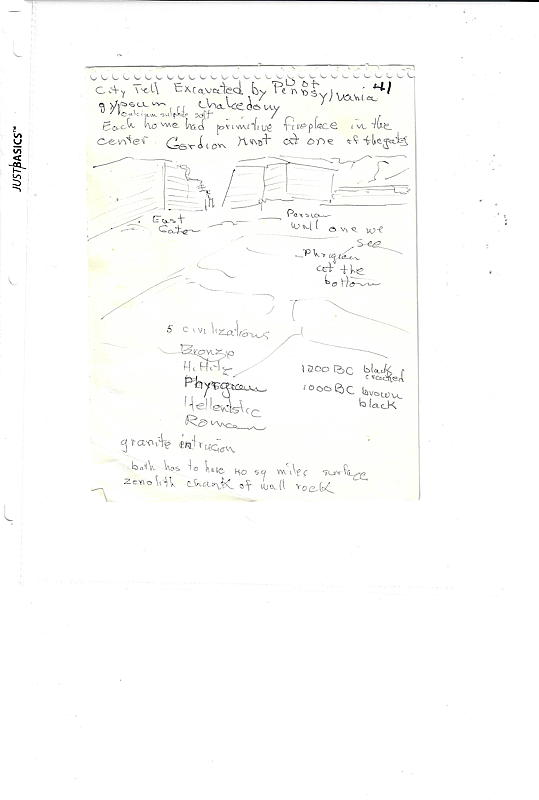 JUSTBASICS™
41
City Tell Excavated by U of Pennsylvania
gypsum chalcedony
calcium sulphide soft
Each home had primitive fireplace in the
center Gordion Knot at one of the gates
East
Gate
Persian
wall one we
see
Phrigian
at the
bottom
5 civilizations
Bronze
Hittite
Phyrgian
Hellenistic
Roman
1200 BC black
creamed
1000 BC brown
black
granite intrusion
bath has to have 40 sq miles surface
zenolith chunk of wall rock